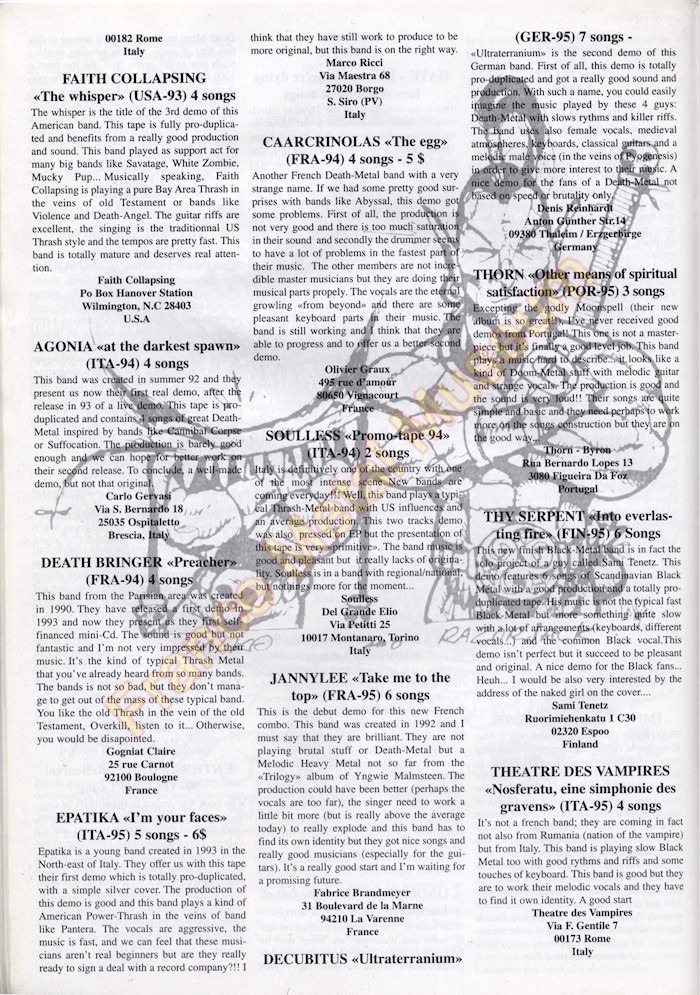 00182 Rome
Italy
FAITH COLLAPSING
«The whisper» (USA-93) 4 songs
The whisper is the title of the 3rd demo of this
American band. This tape is fully pro-duplica-
ted and benefits from a really good production
and sound. This band played as support act for
many big bands like Savatage, White Zombie,
Mucky Pup... Musically speaking, Faith
Collapsing is playing a pure Bay Area Thrash in
the veins of old Testament or bands like
Violence and Death-Angel. The guitar riffs are
excellent, the singing is the traditionnal US
Thrash style and the tempos are pretty fast. This
band is totally mature and deserves real atten-
tion.
Faith Collapsing
Po Box Hanover Station
Wilmington, N.C 28403
U.S.A
AGONIA «at the darkest spawn»
(ITA-94) 4 songs
This band was created in summer 92 and they
present us now their first real demo, after the
release in 93 of a live demo. This tape is pro-
duplicated and contains 4 songs of great Death-
Metal inspired by bands like Cannibal Corpse
or Suffocation. The production is barely good
enough and we can hope for better work on
their second release. To conclude, a well-made
demo, but not that original.
Carlo Gervasi
Via S. Bernardo 18
25035 Ospitaletto
Brescia, Italy
DEATH BRINGER «Preacher»
(FRA-94) 4 songs
This band from the Parisian area was created
in 1990. They have released a first demo in
1993 and now they present us they first self-
financed mini-Cd. The sound is good but not
fantastic and I'm not very impressed by their
music. It's the kind of typical Thrash Metal
that you've already heard from many bands.
The bands is not so bad, but they don't mana-
ge to get out of the mass of these typical band.
You like the old Thrash in the vein of the old
Testament, Overkill, listen to it... Otherwise,
you would be disapointed.
Gogniat Claire
25 rue Carnot
92100 Boulogne
France
EPATIKA «I'm your faces»
(ITA-95) 5 songs - 6$
Epatika is a young band created in 1993 in the
North-east of Italy. They offer us with this tape
their first demo which is totally pro-duplicated,
with a simple silver cover. The production of
this demo is good and this band plays a kind of
American Power-Thrash in the veins of band
like Pantera. The vocals are aggressive, the
music is fast, and we can feel that these musi-
cians aren't real beginners but are they really
ready to sign a deal with a record company?!! I
think that they have still work to produce to be
more original, but this band is on the right way.
Marco Ricci
Via Maestra 68
27020 Borgo
S. Siro (PV)
Italy
CAARCRINOLAS «The egg»
(FRA-94) 4 songs - 5 $
Another French Death-Metal band with a very
strange name. If we had some pretty good sur-
prises with bands like Abyssal, this demo got
some problems. First of all, the production is
not very good and there is too much saturation
in their sound and secondly the drummer seems
to have a lot of problems in the fastest part of
their music. The other members are not incre-
dible master musicians but they are doing their
musical parts propely. The vocals are the eternal
growling «from beyond» and there are some
pleasant keyboard parts in their music. The
band is still working and I think that they are
able to progress and to offer us a better second
demo.
Olivier Graux
495 rue d'amour
80650 Vignacourt
France
SOULLESS «Promo-tape 94»
(ITA-94) 2 songs
Italy is definitively one of the country with one
of the most intense scene. New bands are
coming everyday!!! Well, this band plays a typi-
cal Thrash-Metal band with US influences and
an average production. This two tracks demo
was also pressed on EP but the presentation of
this tape is very «primitive». The band music is
good and pleasant but it really lacks of origina-
lity. Soulless is in a band with regional/national,
but nothings more for the moment...
Soulless
Del Grande Elio
Via Petitti 25
10017 Montanaro, Torino
Italy
JANNYLEE «Take me to the
top» (FRA-95) 6 songs
This is the debut demo for this new French
combo. This band was created in 1992 and I
must say that they are brilliant. They are not
playing brutal stuff or Death-Metal but a
Melodic Heavy Metal not so far from the
«Trilogy» album of Yngwie Malmsteen. The
production could have been better (perhaps the
vocals are too far), the singer need to work a
little bit more (but is really above the average
today) to really explode and this band has to
find its own identity but they got nice songs and
really good musicians (especially for the gui-
tars). It's a really good start and I'm waiting for
a promising future.
Fabrice Brandmeyer
31 Boulevard de la Marne
94210 La Varenne
France
DECUBITUS «Ultraterranium»
(GER-95) 7 songs -
«Ultraterranium» is the second demo of this
German band. First of all, this demo is totally
pro-duplicated and got a really good sound and
production. With such a name, you could easily
imagine the music played by these 4 guys:
Death-Metal with slows rythms and killer riffs.
The band uses also female vocals, medieval
atmospheres, keyboards, classical guitars and a
melodic male voice (in the veins of Pyogenesis)
in order to give more interest to their music. A
nice demo for the fans of a Death-Metal not
based on speed or brutality only.
Denis Reinhardt
Anton Günther Str.14
09380 Thalheim / Erzgerbirge
Germany
THORN «Other means of spiritual
satisfaction» (POR-95) 3 songs
Excepting the godly Moonspell (their new
album is so great!), I've never received good
demos from Portugal. This one is not a master-
piece but it's finally a good level job. This band
plays a music hard to describe.. it looks like a
kind of Doom-Metal stuff with melodic guitar
and strange vocals. The production is good and
the sound is very loud!! Their songs are quite
simple and basic and they need perhaps to work
more on the songs construction but they are on
the good way...
Thorn - Byron
Rua Bernardo Lopes 13
3080 Figueira Da Foz
Portugal
THY SERPENT «Into everlas-
ting fire» (FIN-95) 6 Songs
This new finish Black-Metal band is in fact the
solo project of a guy called Sami Tenetz. This
demo features 6 songs of Scandinavian Black
Metal with a good production and a totally pro-
duplicated tape. His music is not the typical fast
Black-Metal but more something quite slow
with a lot of arrangements (keyboards, different
vocals...) and the common Black vocal.This
demo isn't perfect but it succeed to be pleasant
and original. A nice demo for the Black fans...
Heuh... I would be also very interested by the
address of the naked girl on the cover....
Sami Tenetz
Ruorimiehenkatu 1 C30
02320 Espoo
Finland
THEATRE DES VAMPIRES
«Nosferatu, eine simphonie des
gravens» (ITA-95) 4 songs
It's not a french band; they are coming in fact
not also from Rumania (nation of the vampire)
but from Italy. This band is playing slow Black
Metal too with good rythms and riffs and some
touches of keyboard. This band is good but they
are to work their melodic vocals and they have
to find it own identity. A good start
Theatre des Vampires
Via F. Gentile 7
00173 Rome
Italy